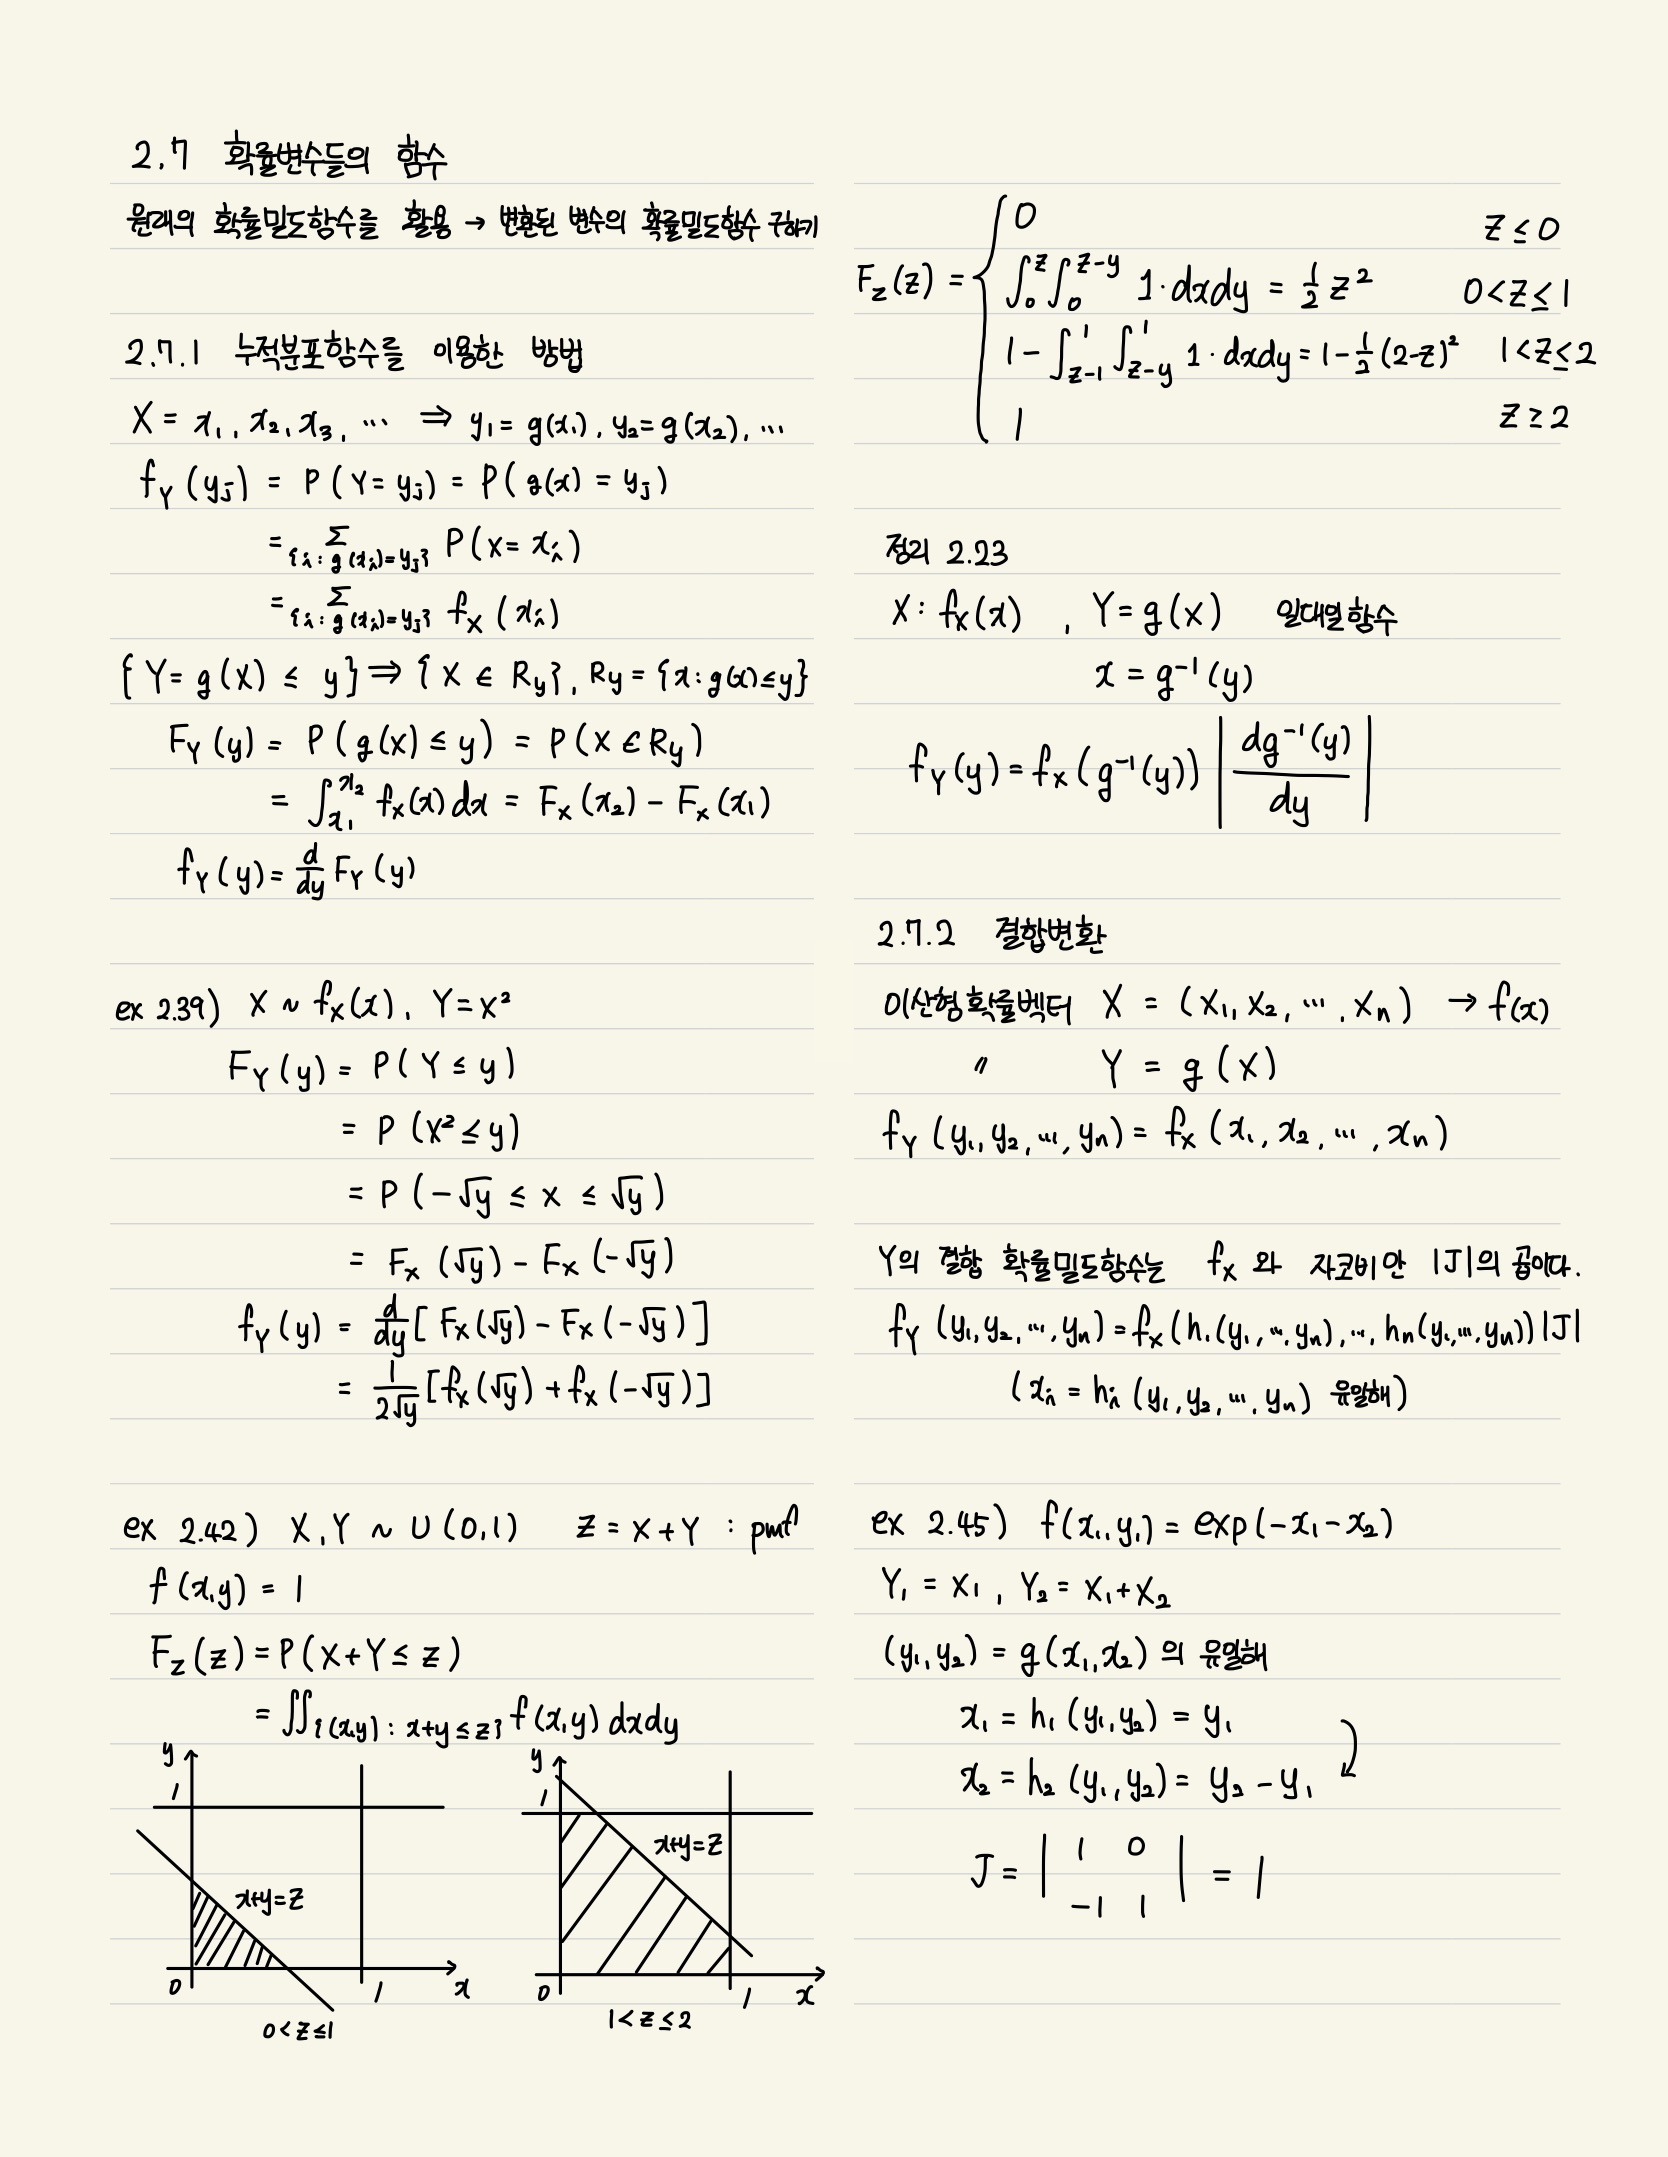 2.7 확률변수들의 함수
원래의 확률밀도함수를 활용 → 변환된 변수의 확률밀도함수 구하기
2.7.1 누적분포함수를 이용한 방법
X = x₁, x₂, x₃, ⋯ ⇒ y₁ = g(x₁), y₂ = g(x₂), ⋯
f_Y(y_j) = P(Y = y_j) = P(g(x) = y_j)
= Σ_{i : g(x_i) = y_j} P(X = x_i)
= Σ_{i : g(x_i) = y_j} f_X(x_i)
{Y = g(X) ≤ y} ⇒ {X ∈ R_y}, R_y = {x : g(x) ≤ y}
F_Y(y) = P(g(x) ≤ y) = P(X ∈ R_y)
= ∫_{x₁}^{x₂} f_X(x) dx = F_X(x₂) − F_X(x₁)
f_Y(y) = d/dy F_Y(y)
ex 2.39) X ~ f_X(x), Y = X²
F_Y(y) = P(Y ≤ y)
= P(X² ≤ y)
= P(−√y ≤ x ≤ √y)
= F_X(√y) − F_X(−√y)
f_Y(y) = d/dy [F_X(√y) − F_X(−√y)]
= 1/(2√y) [f_X(√y) + f_X(−√y)]
ex 2.42) X, Y ~ U(0,1) Z = X + Y : pmf
f(x,y) = 1
F_Z(z) = P(X + Y ≤ z)
= ∬_{(x,y) : x+y ≤ z} f(x,y) dxdy
y
1
x+y=z
0
1
x
0 < z ≤ 1
y
1
x+y=z
0
1
x
1 < z ≤ 2
F_Z(z) = { 0 z ≤ 0
∫_0^z ∫_0^{z−y} 1 · dxdy = ½ z² 0 < z ≤ 1
1 − ∫_{z−1}^1 ∫_{z−y}^1 1 · dxdy = 1 − ½ (2−z)² 1 < z ≤ 2
1 z ≥ 2
정리 2.23
X : f_X(x) , Y = g(X) 일대일 함수
x = g⁻¹(y)
f_Y(y) = f_X(g⁻¹(y)) | dg⁻¹(y) / dy |
2.7.2 결합변환
이산형 확률벡터 X = (X₁, X₂, ⋯, X_n) → f(x)
〃 Y = g(X)
f_Y(y₁, y₂, ⋯, y_n) = f_X(x₁, x₂, ⋯, x_n)
Y의 결합 확률밀도함수는 f_X 와 자코비안 |J|의 곱이다.
f_Y(y₁, y₂, ⋯, y_n) = f_X(h₁(y₁, ⋯, y_n), ⋯, h_n(y₁, ⋯, y_n)) |J|
(x_i = h_i(y₁, y₂, ⋯, y_n) 유일해)
ex 2.45) f(x₁, y₁) = exp(−x₁ − x₂)
Y₁ = X₁ , Y₂ = X₁ + X₂
(y₁, y₂) = g(x₁, x₂) 의 유일해
x₁ = h₁(y₁, y₂) = y₁
x₂ = h₂(y₁, y₂) = y₂ − y₁
J = | 1 0
−1 1 | = 1